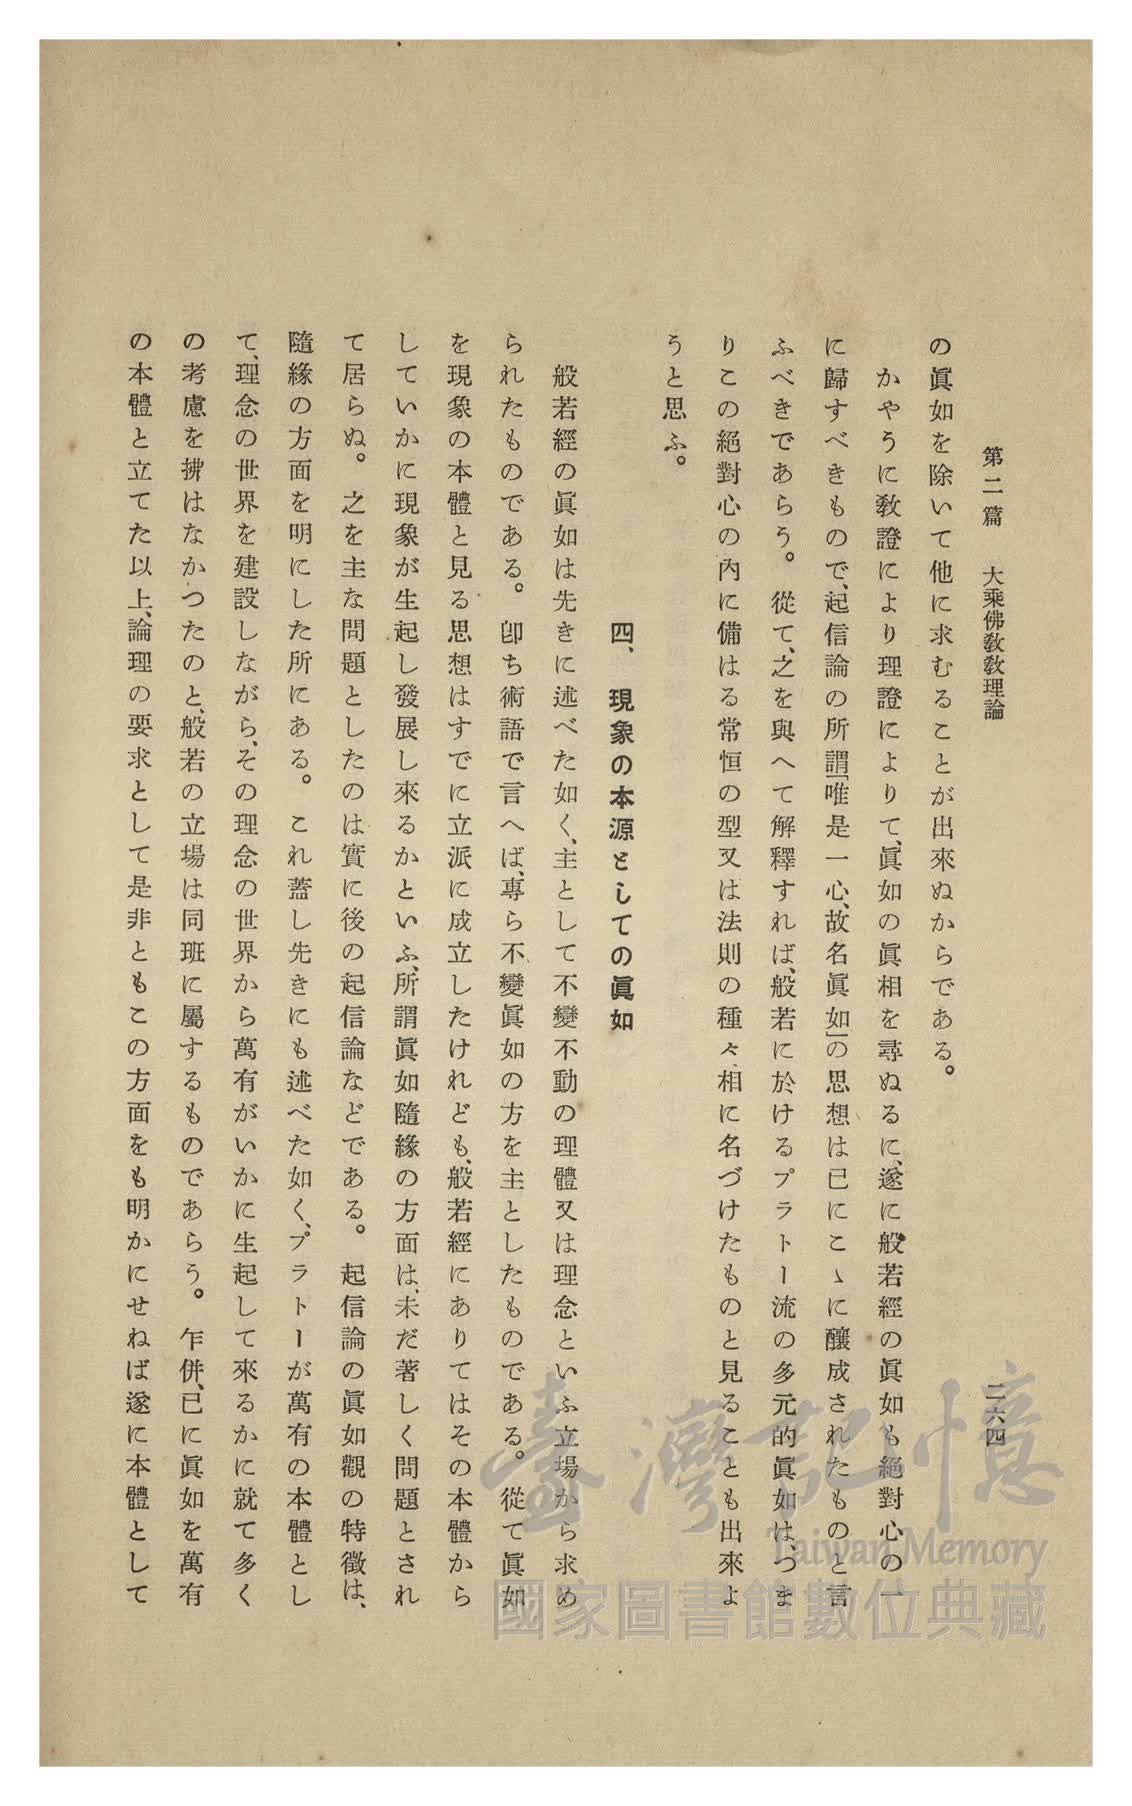 第二篇　大乘佛敎敎理論　二六四
の眞如を除いて他に求むることが出來ぬからである。
かやうに敎證により理證によりて、眞如の眞相を尋ぬるに、遂に般若經の眞如も絕對心の一
に歸すべきもので、起信論の所謂「唯是一心、故名眞如」の思想は已にこゝに釀成されたものと言
ふべきであらう。從て、之を與へて解釋すれば、般若に於けるプラトー流の多元的眞如は、つま
りこの絕對心の內に備はる常恒の型又は法則の種々相に名づけたものと見ることも出來よ
うと思ふ。
四、　現象の本源としての眞如
般若經の眞如は先きに述べた如く、主として不變不動の理體又は理念といふ立場から求め
られたものである。卽ち術語で言へば、專ら不變眞如の方を主としたものである。從て眞如
を現象の本體と見る思想はすでに立派に成立したけれども、般若經にありてはその本體から
していかに現象が生起し發展し來るかといふ、所謂眞如隨緣の方面は、未だ著しく問題とされ
て居らぬ。之を主な問題としたのは實に後の起信論などである。起信論の眞如觀の特徵は、
隨緣の方面を明にした所にある。これ蓋し先きにも述べた如く、プラトーが萬有の本體とし
て、理念の世界を建設しながら、その理念の世界から萬有がいかに生起して來るかに就て多く
の考慮を拂はなかつたのと、般若の立場は同班に屬するものであらう。乍併、已に眞如を萬有
の本體と立てた以上、論理の要求として是非ともこの方面をも明かにせねば遂に本體として
臺灣記憶
Taiwan Memory
國家圖書館數位典藏